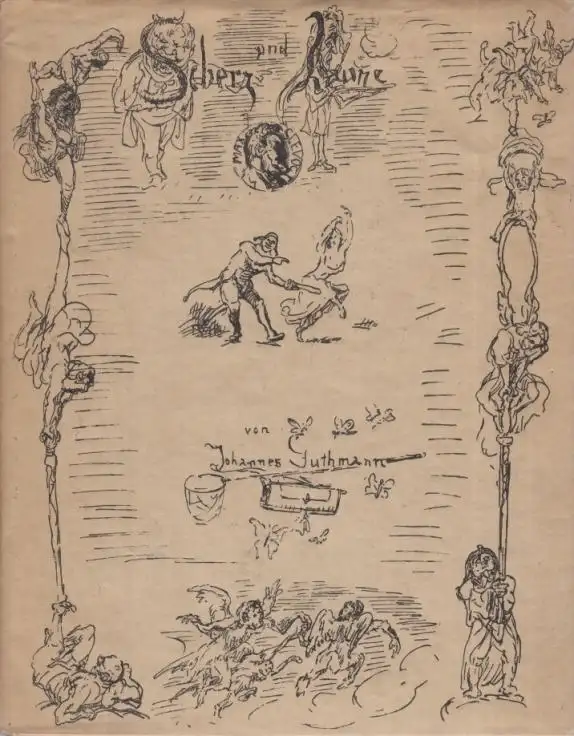 Scherz und Laune
MAX
von
Johannes Guthmann